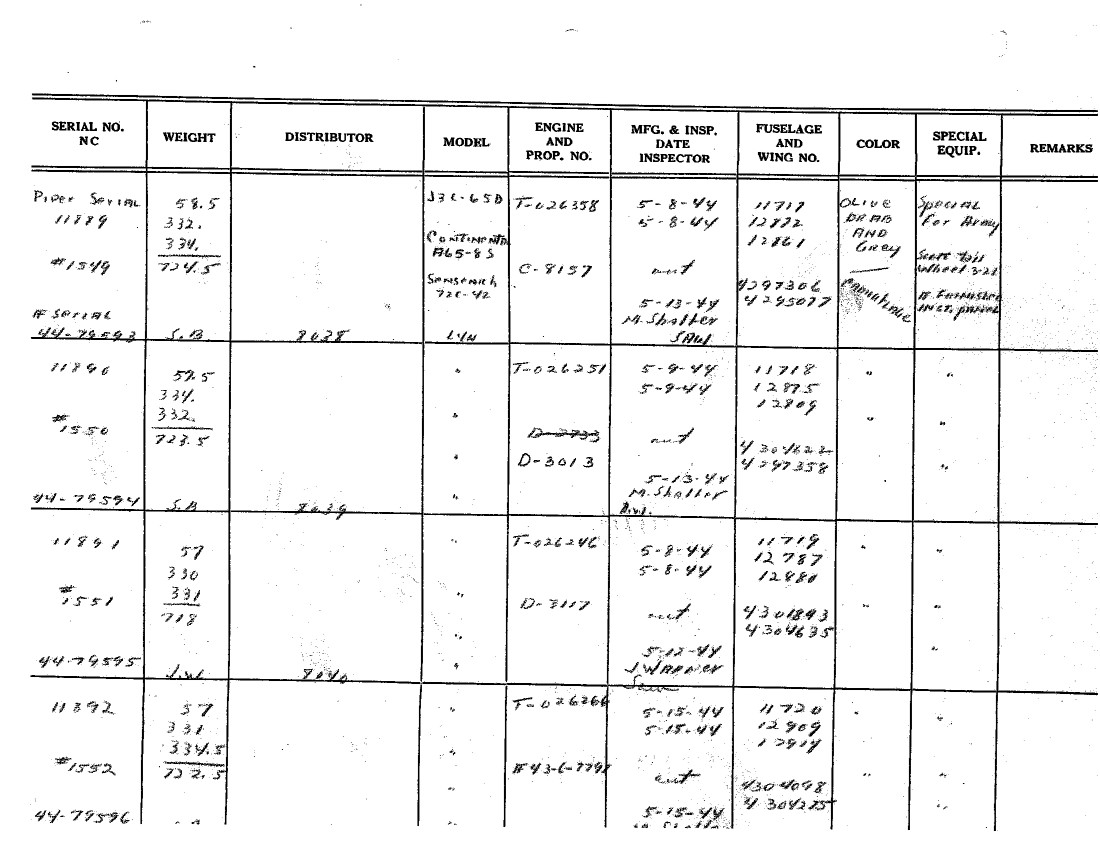 SERIAL NO. NC
WEIGHT
DISTRIBUTOR
MODEL
ENGINE AND PROP. NO.
MFG. & INSP. DATE INSPECTOR
FUSELAGE AND WING NO.
COLOR
SPECIAL EQUIP.
REMARKS
Piper Serial
11889
#1549
AF Serial
44-79593
58.5
332.
334.
724.5
S.B
8038
J3C-65D
Continental
A65-8S
Sensenich
72C-42
LYN
T-026358
C-8157
5-8-44
5-8-44
5-13-44
M. Shatter
11717
12872
12861
4297306
4295077
OLIVE
DRAB
AND
Grey
Camouflage
Special
For Army
Scott Tail
Wheel 3-21
AF Furnished
INST. panel
11890
#1550
44-79594
57.5
334.
332.
723.5
S.B
8039
"
"
"
"
T-026251
D-3733
D-3013
5-9-44
5-9-44
5-13-44
M. Shatter
11718
12875
12809
4304622
4297358
"
"
"
"
"
11891
#1551
44-79595
57
330
331
718
J.W.
8040
"
"
"
"
T-026246
D-3117
5-8-44
5-8-44
5-12-44
J. Warner
11719
12787
12880
4301893
4304635
"
"
"
"
"
11892
#1552
44-79596
57
331
334.5
722.5
"
"
"
"
T-026266
AF43-6-7798
5-15-44
5-15-44
5-15-44
11720
12909
12914
4304098
4304225
"
"
"
"
"